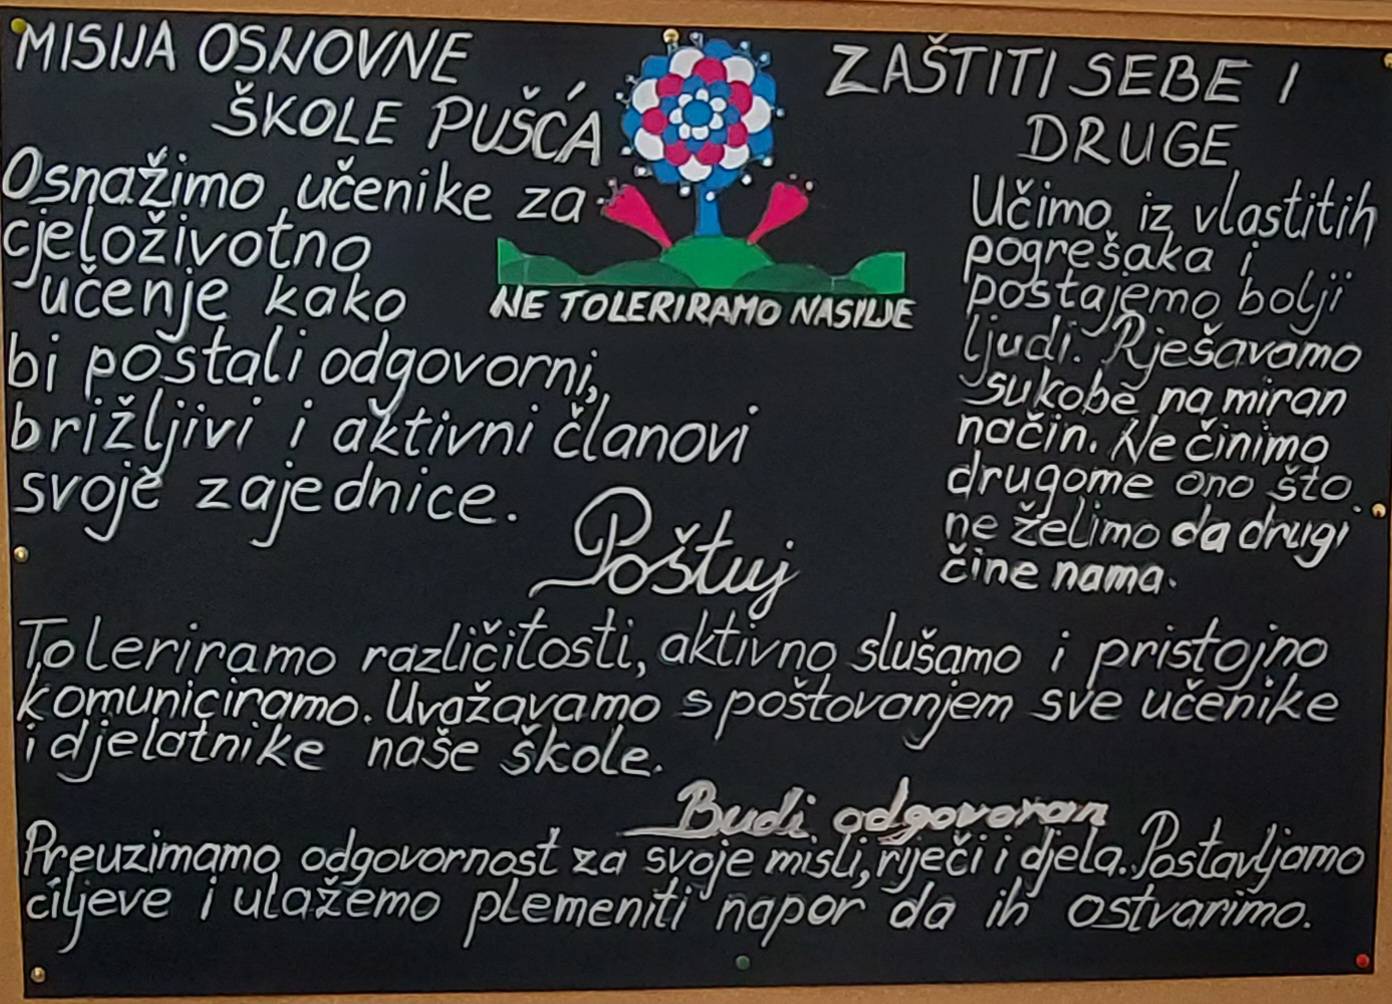 MISIJA OSNOVNE
ŠKOLE PUŠĆA
Osnažimo učenike za
cjeloživotno
učenje kako
bi postali odgovorni,
brižljivi i aktivni članovi
svoje zajednice.
NE TOLERIRAMO NASILJE
ZAŠTITI SEBE I
DRUGE
Učimo iz vlastitih
pogrešaka i
postajemo bolji
ljudi. Rješavamo
sukobe na miran
način. Ne činimo
drugome ono što
ne želimo da drugi
čine nama.
Poštuj
Toleriramo različitosti, aktivno slušamo i pristojno
komuniciramo. Uvažavamo s poštovanjem sve učenike
i djelatnike naše škole.
Budi odgovoran
Preuzimamo odgovornost za svoje misli, riječi i djela. Postavljamo
ciljeve i ulažemo plemeniti napor da ih ostvarimo.